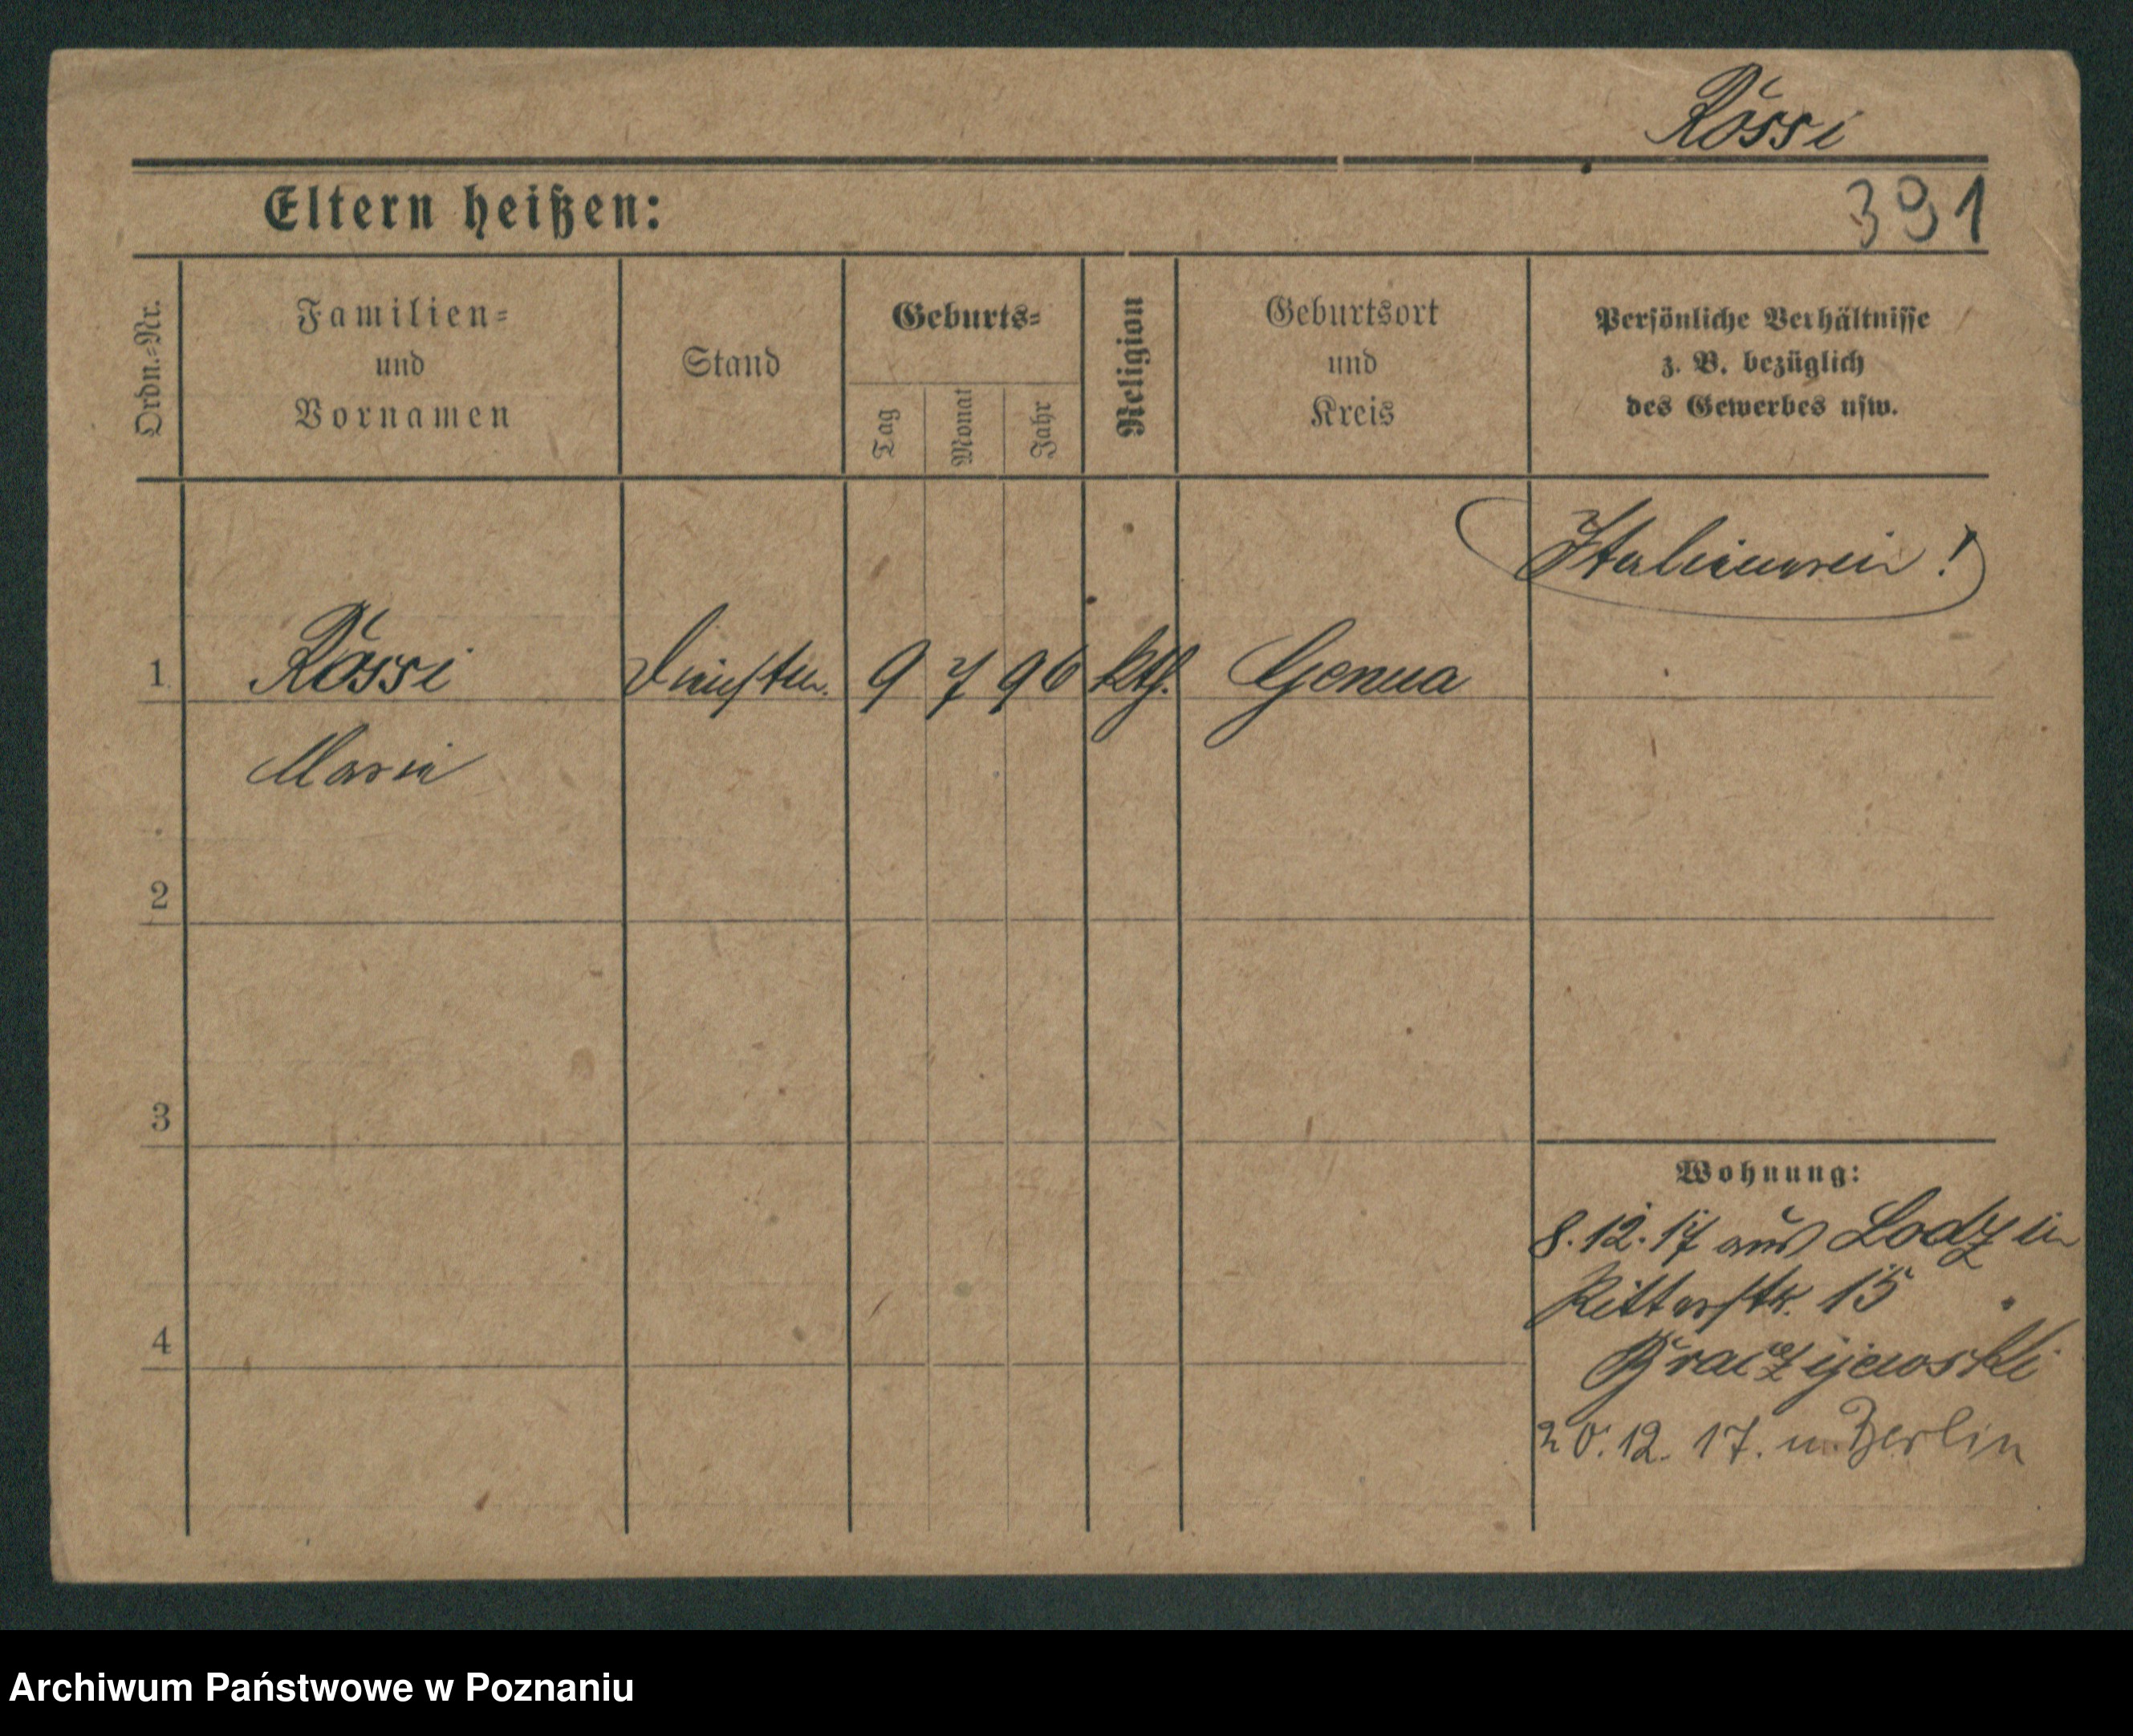 Rossi
Eltern heißen:
391
Ordn.-Nr.
Familien-
und
Vornamen
Stand
Geburts-
Tag
Monat
Jahr
Religion
Geburtsort
und
Kreis
Persönliche Verhältnisse
z. B. bezüglich
des Gewerbes usw.
Italienerin!
1 Rossi 9 7 96 kth. Genua
Maria
2
3
4
Wohnung:
8.12.17 aus Lodz in
Ritterstr. 15
20.12.17. n. Berlin
Archiwum Państwowe w Poznaniu